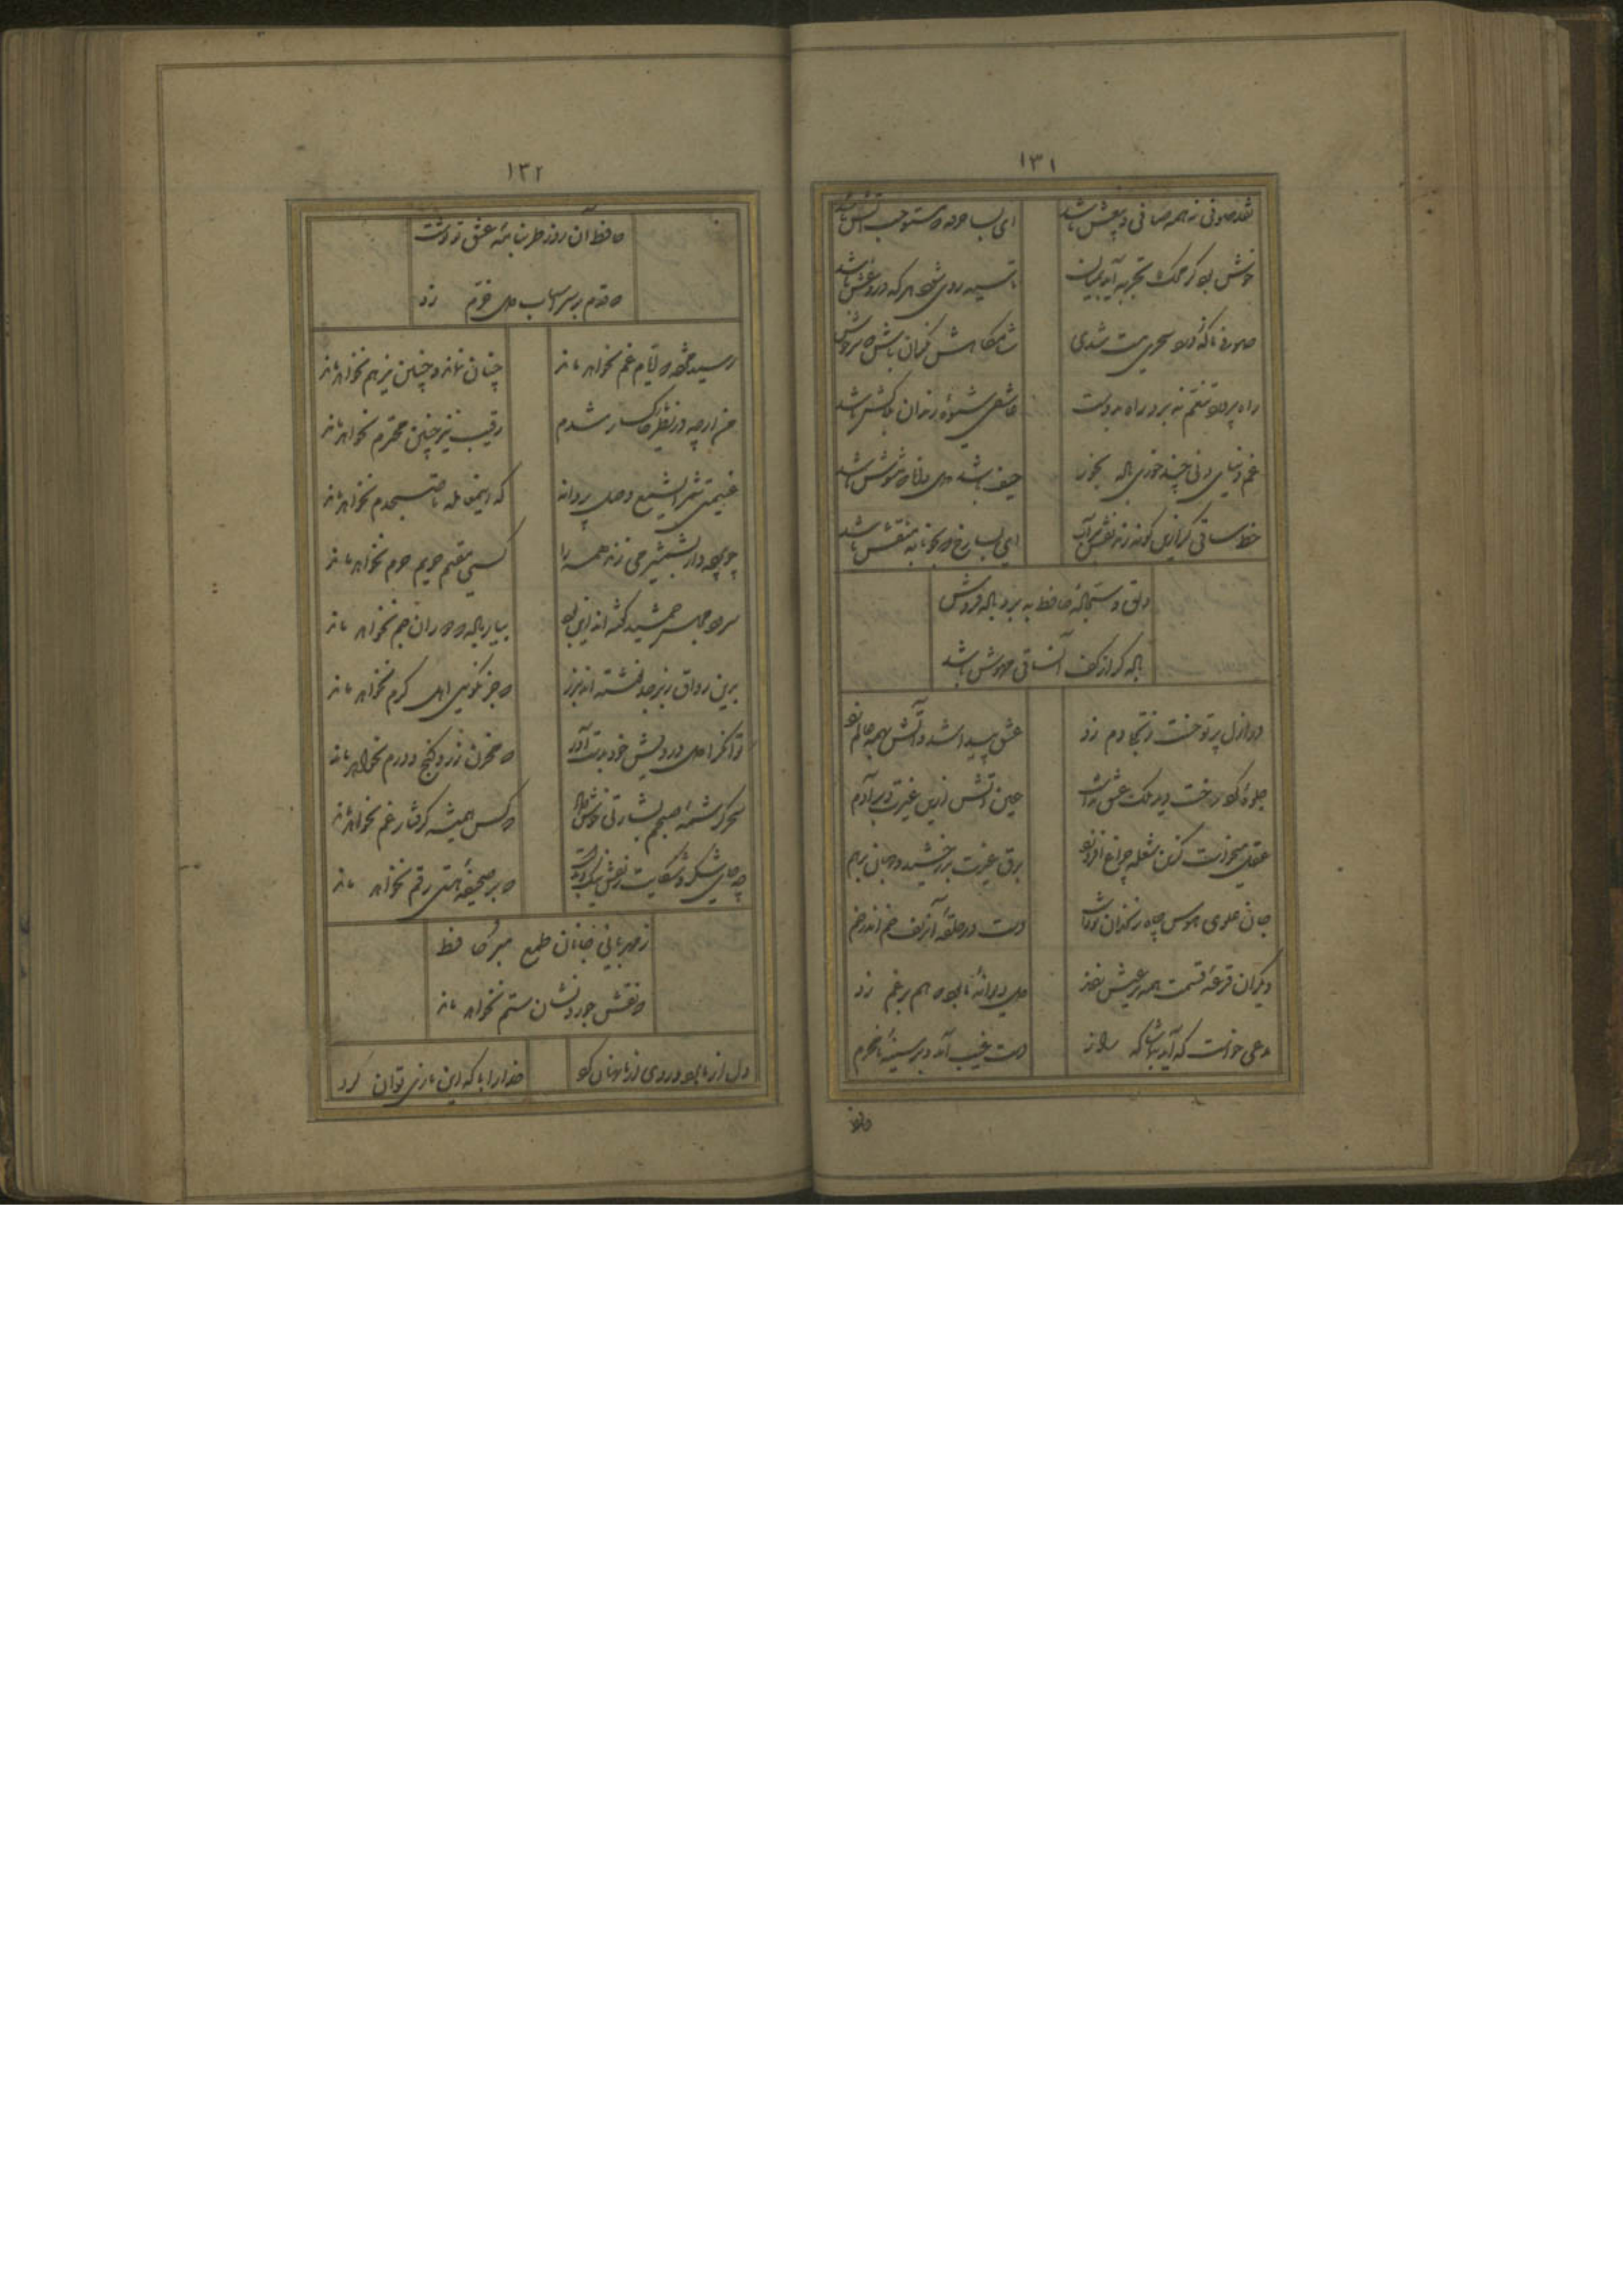 ۱۳۱
نقد صوفی نه همه صافی و بیغش باشد
ای بسا خرقه که مستوجب آتش باشد
خوش بود گر محک تجربه آید بمیان
تا سیه روی شود هر که دروغش باشد
صوفی ما که ز ورد سحری مست شدی
شامگاهش نگران باش که سرخوش
ناز پرورد تنعم نبرد راه بدوست
عاشقی شیوه رندان بلاکش باشد
غم دنیای دنی چند خوری باده بخور
حیف باشد دل دانا که مشوش باشد
خط ساقی گر ازین گونه زند نقش بر آب
ای بسا رخ که بخونابه منقش باشد
دلق و سجاده حافظ به برد باده فروش
باده گر از کف آن ساقی مهوش باشد
در ازل پرتو حسنت ز تجلی دم زد
عشق پیدا شد و آتش بهمه عالم
جلوه کرد رخت دید ملک عشق نداشت
عین آتش شد ازین غیرت و بر آدم
عقل میخواست کزین شعله چراغ افروزد
برق غیرت بدرخشید و جهان برهم
جان علوی هوس چاه زنخدان تو داشت
دست در حلقه آن زلف خم اندر خم
دیگران قرعه قسمت همه بر عیش زدند
دل دیوانه ما بود که هم بر غم زد
مدعی خواست که آید بتماشاگه راز
دست غیب آمد و بر سینه نامحرم
حافظ
۱۳۲
حافظ آن روز طربنامه عشق تو نوشت
که قدم بر سر اسباب دل خرم زد
رسید مژده که ایام غم نخواهد ماند
چنان نماند و چنین نیز هم نخواهد ماند
من ارچه در نظر خاکسار شدم
رقیب نیز چنین محترم نخواهد ماند
غنیمتی شمر ای شمع وصل پروانه
که این معامله تا صبحدم نخواهد ماند
چو پرده دار بشمشیر می زند همه را
کسی مقیم حریم حرم نخواهد ماند
سرود مجلس جمشید گفته اند این بود
بیار باده که دوران جم نخواهد ماند
برین رواق زبرجد نوشته اند بزر
که جز نکویی اهل کرم نخواهد ماند
توانگرا دل درویش خود بدست آور
که مخزن زر و گنج و درم نخواهد ماند
سحر کرشمه صبحم بشارتی خوش داد
که کس همیشه گرفتار غم نخواهد ماند
چه جای شکر و شکایت ز نقش نیک و بدست
که بر صحیفه هستی رقم نخواهد ماند
ز مهربانی جانان طمع مبر حافظ
که نقش جور و نشان ستم نخواهد ماند
دل از ما برد و روی از ما نهان کرد
خدا را با که این بازی توان کرد